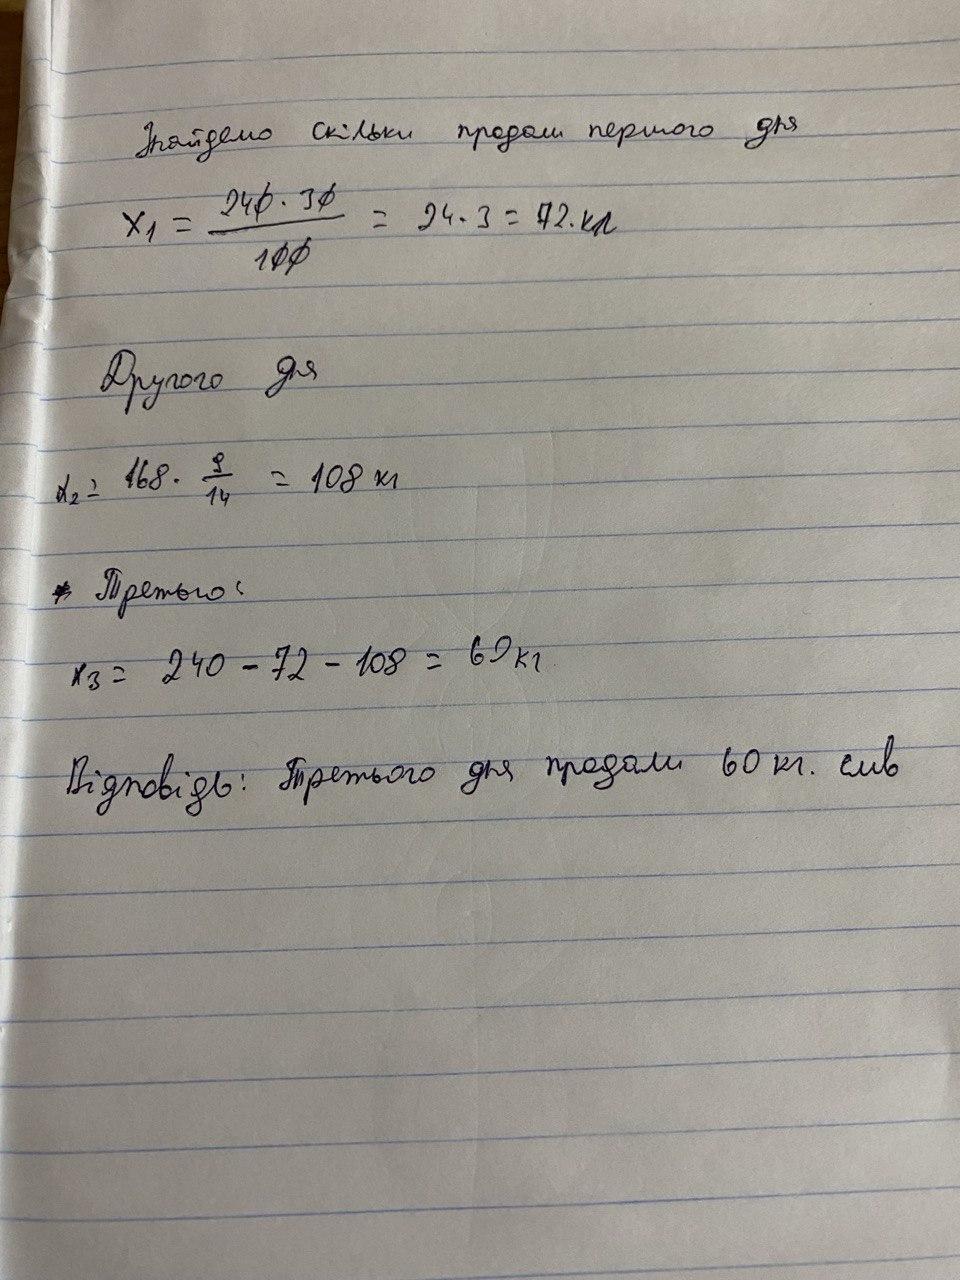 Знайдемо скільки продали першого дня
x₁ = 240 · 30 / 100 = 24 · 3 = 72 · кг
Другого дня
x₂ = 168 · 9/14 = 108 кг
Третього:
x₃ = 240 - 72 - 108 = 60 кг
Відповідь: Третього дня продали 60 кг. слив